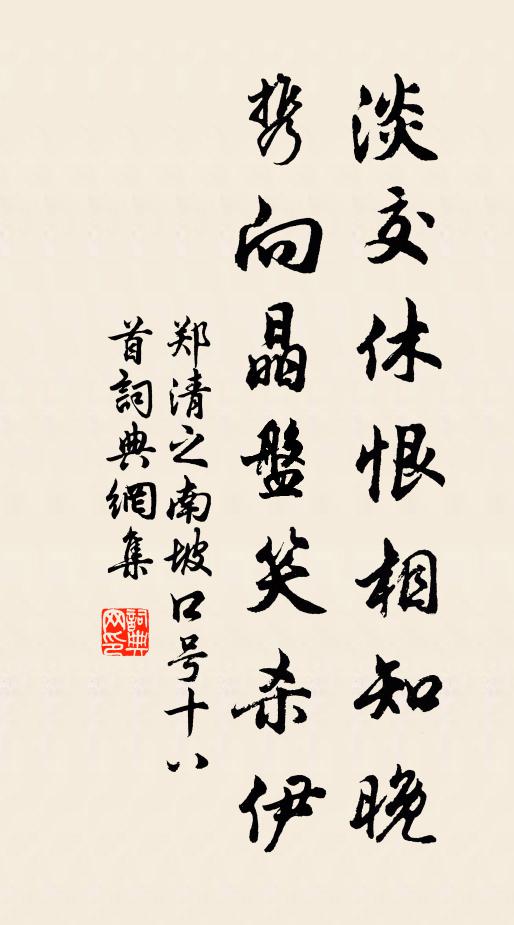 淡交休恨相知晚
携向晶盤笑杀伊
郑清之南坡口号十八
首詞典網集
詞典
网印